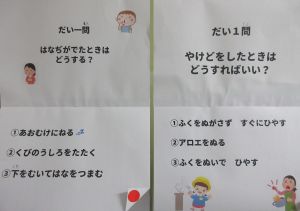 だい一問
はなぢがでたときは
どうする？
①あおむけにねる
②くびのうしろをたたく
③下をむいてはなをつまむ
だい１問
やけどをしたときは
どうすればいい？
①ふくをぬがさず　すぐにひやす
②アロエをぬる
③ふくをぬいで　ひやす